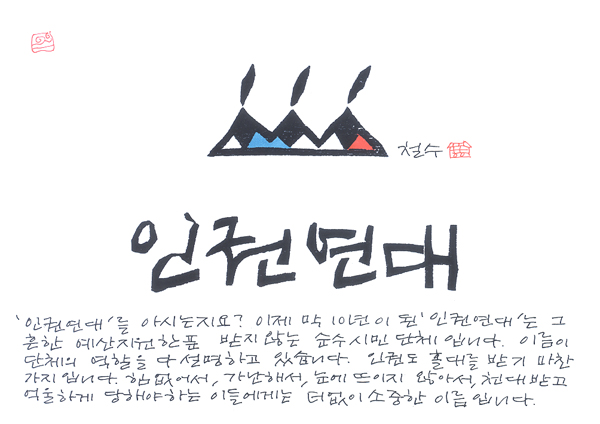 철수
인권연대
'인권연대'를 아시는지요? 이제 막 10년이 된 '인권연대'는 그
흔한 예산지원 한 푼 받지 않는 순수시민단체입니다. 이름이
단체의 역할을 다 설명하고 있습니다. 인권도 홀대를 받기 마찬
가지입니다. 힘없어서, 가난해서, 눈에 뜨이지 않아서, 천대받고
억울하게 당해야 하는 이들에게는 더없이 소중한 이름입니다.